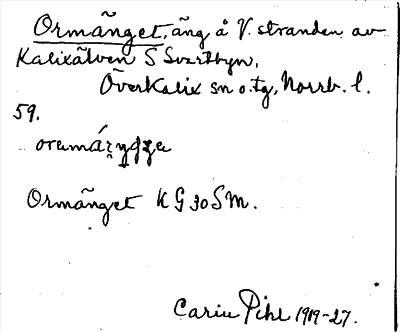 Ormänget, äng å V. stranden av
Kalixälven S Svartbyn,
Överkalix sn o. tg, Norrb. l.
59.
Ormänget KG 30 SM.
Carin Pihl 1919-27.